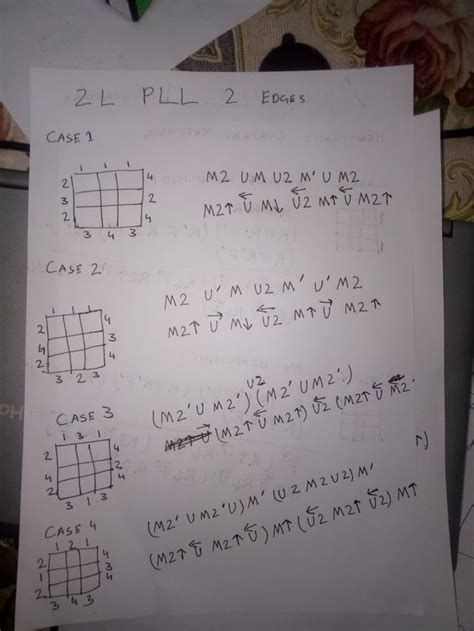 2L PLL 2 EDGES
CASE 1
1 1 1
2 4
3 2
2 4
3 4 3
M2 U M U2 M' U M2
M2↑ U← M↓ U2← M↑ U← M2↑
CASE 2
1 1 1
2 4
4 3
2 4
3 2 3
M2 U' M U2 M' U' M2
M2↑ U→ M↓ U2← M↑ U→ M2↑
CASE 3
1 3 1
2 4
4 2
2 4
3 1 3
(M2' U M2') U2 (M2' U M2')
(M2↑ U← M2↑) U2← (M2↑ U← M2↑)
CASE 4
1 2 1
2 4
1 3
2 4
3 4 3
(M2' U M2' U) M' (U2 M2 U2) M'
(M2↑ U← M2↑ U←) M↑ (U2← M2↑ U2←) M↑